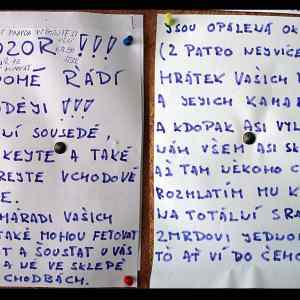 OZOR !!!
OMÉ ŘÁDÍ
DĚJI !!!
NÍ SOUSEDÉ,
KEJTE A TAKÉ
REJTE VCHODOVÉ
E.
MARADI VAŠICH
TAKÉ MOHOU FETOVAT
T A ŠOUSTAT U VÁS
A NE VE SKLEPĚ
CHODBÁCH.
JSOU OPÁLENÁ OK
(2 PATRO NEJVÍCE
HRÁTEK VAŠICH
A JEJICH KAMA
A KDOPAK ASI VYL
NÁM VŠEM ASI SK
AŽ TAM NĚKOHO C
ROZMLÁTÍM MU K
NA TOTÁLNÍ SRA
ZMRDOVI JEDNO
TO AŤ VÍ DO ČEHO